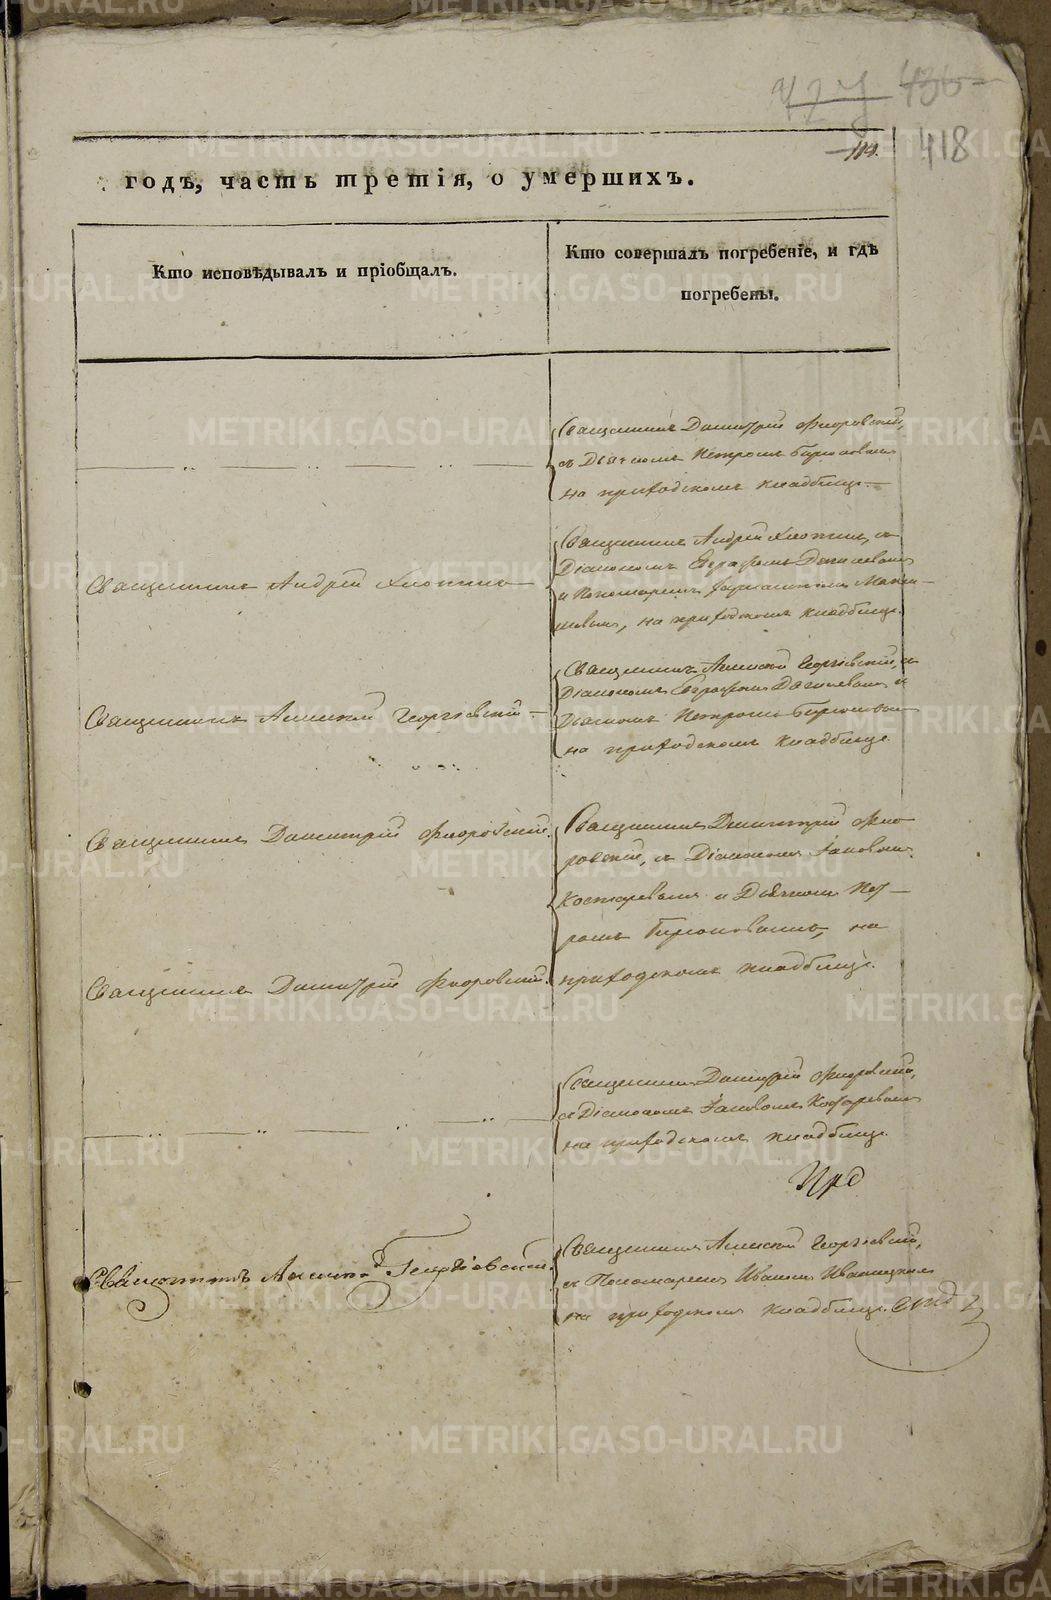 436
418
годъ, часть третія, о умершихъ.
Кто исповѣдывалъ и пріобщалъ.
Кто совершалъ погребеніе, и гдѣ
погребены.
Священникъ Димитрій Флоровскій,
съ Дьячкомъ Петромъ
на приходскомъ кладбищѣ.
Священникъ Андрей
Священникъ Андрей
Діакономъ Евграфомъ
и Пономаремъ
на приходскомъ кладбищѣ.
Священникъ Алексѣй Георгіевскій
Священникъ Алексѣй Георгіевскій, съ
Діакономъ Евграфомъ и
Дьячкомъ Петромъ
на приходскомъ кладбищѣ.
Священникъ Димитрій Флоровскій.
Священникъ Димитрій Фло
ровскій, съ Діакономъ Іаковомъ
Костаревымъ и Дьячкомъ Пет
ромъ на
приходскомъ кладбищѣ.
Священникъ Димитрій Флоровскій.
Священникъ Димитрій Флоровскій,
съ Діакономъ Іаковомъ Костаревымъ
на приходскомъ кладбищѣ.
Священникъ Алексѣй Георгіевскій.
Священникъ Алексѣй Георгіевскій,
съ Пономаремъ Иваномъ
на приходскомъ кладбищѣ.
METRIKI.GASO-URAL.RU